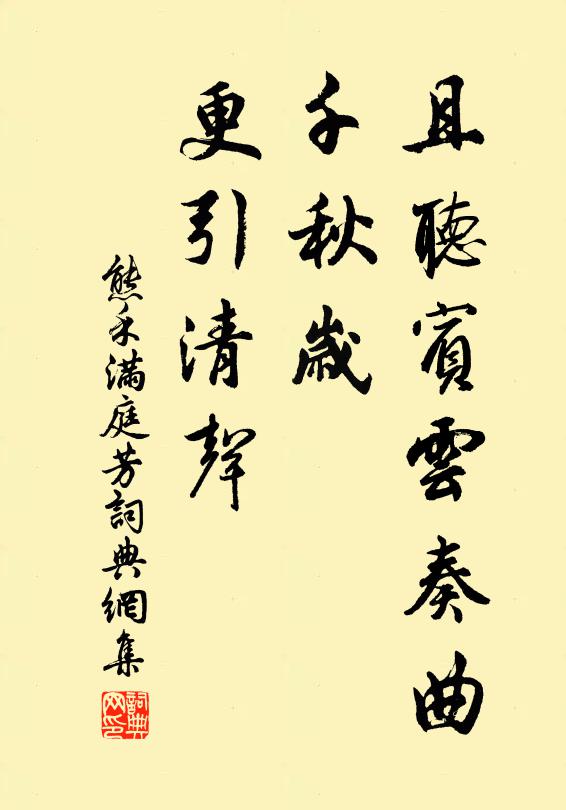 且聽賓雲奏曲
千秋歲
更引清聲
熊禾滿庭芳詞典網集
詞典網印